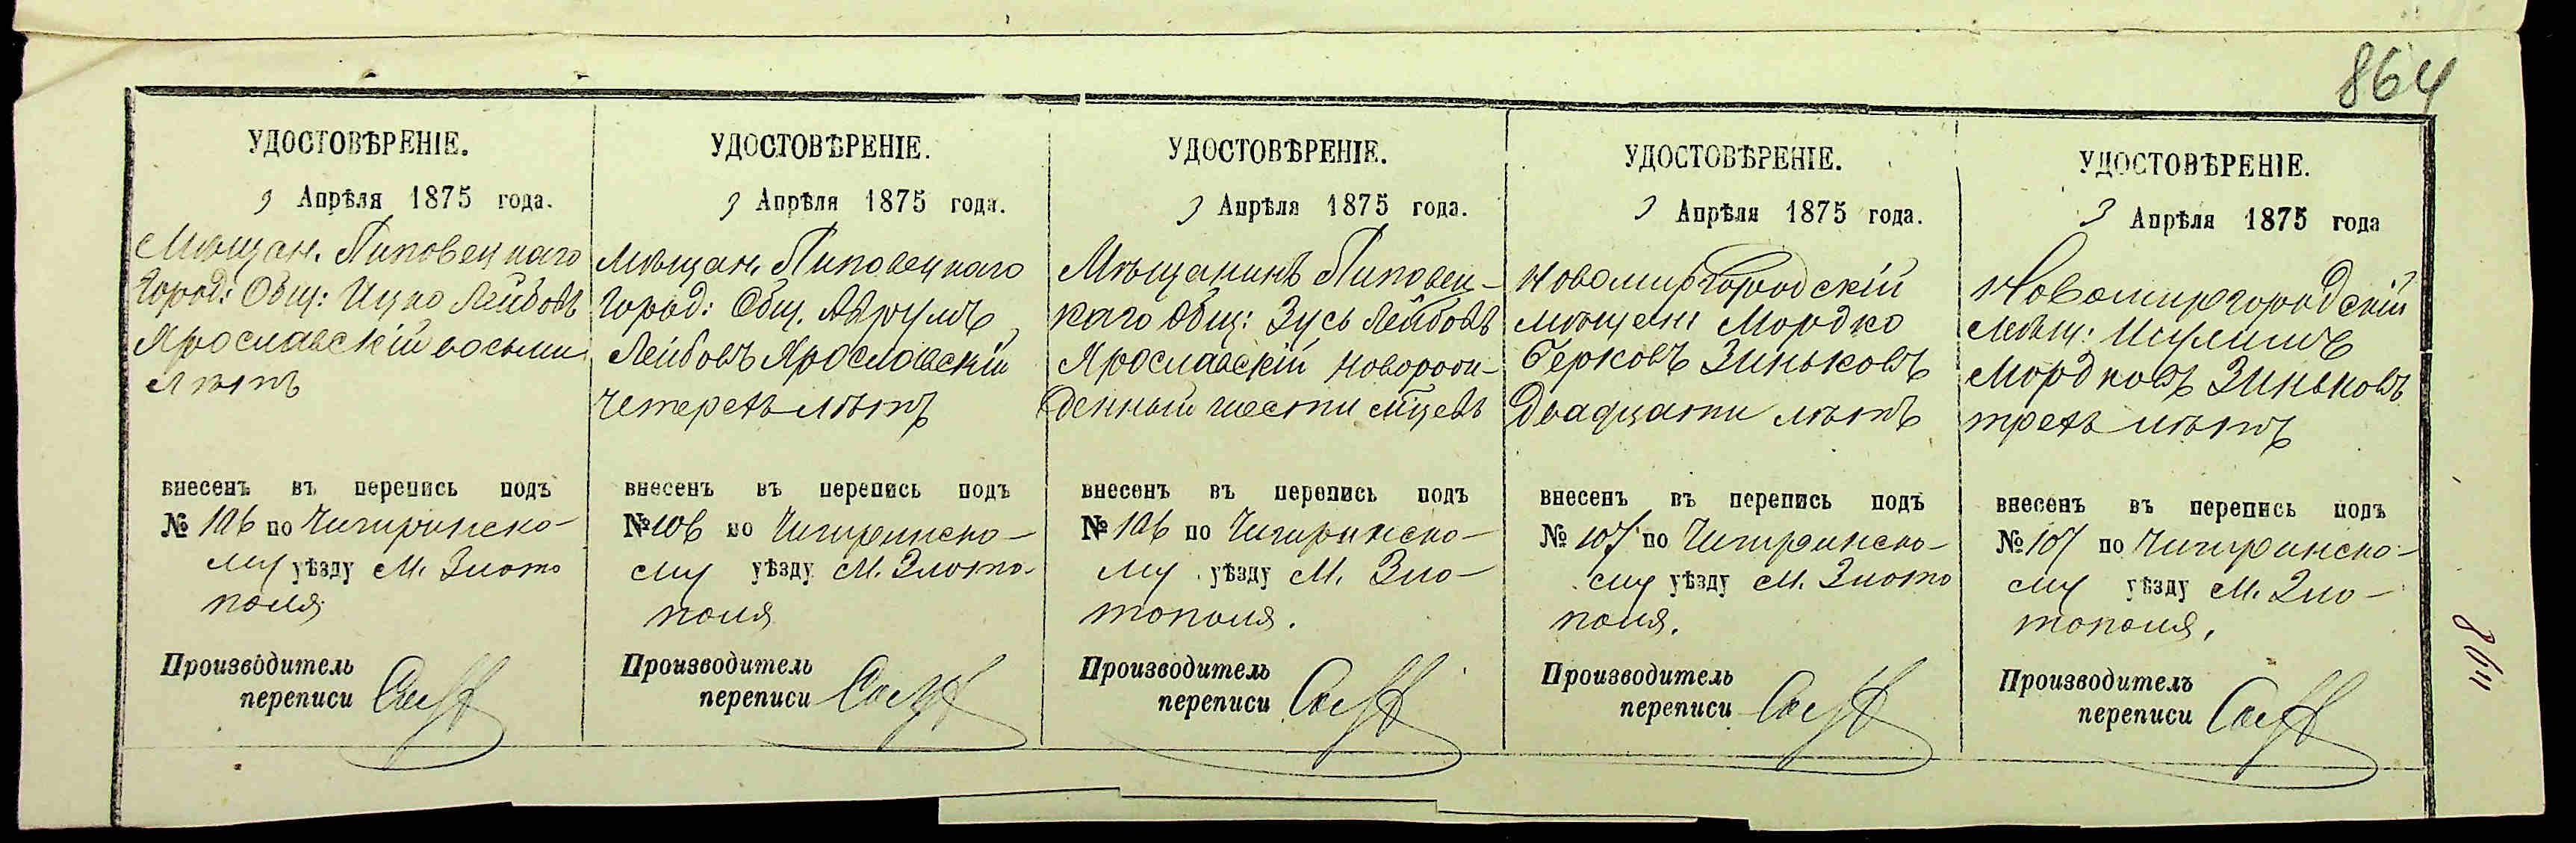 864
УДОСТОВѢРЕНІЕ.
3 Апрѣля 1875 года.
Мѣщан. Липовецкаго
Город: Общ: Ицко Лейбовъ
Ярославскій восьми
лѣтъ
внесенъ въ перепись подъ
№ 106 по Чигиринско-
му уѣзду М. Злато
поля
Производитель
переписи
УДОСТОВѢРЕНІЕ.
3 Апрѣля 1875 года.
Мѣщан. Липовецкаго
Город: Общ.
Лейбовъ Ярославскій
четерехъ лѣтъ
внесенъ въ перепись подъ
№ 106 по Чигиринско-
му уѣзду М. Злато-
поля
Производитель
переписи
УДОСТОВѢРЕНІЕ.
3 Апрѣля 1875 года.
Мѣщанинъ Липовец-
каго Общ: Зусь Лейбовъ
Ярославскій новорож-
денный шести мѣцевъ
внесенъ въ перепись подъ
№ 106 по Чигиринско-
му уѣзду М. Зла-
тополя.
Производитель
переписи
УДОСТОВѢРЕНІЕ.
3 Апрѣля 1875 года.
Новомиргородскій
мѣщан: Мордко
Берковъ Зиньковъ
двадцати лѣтъ
внесенъ въ перепись подъ
№ 107 по Чигиринско-
му уѣзду М. Злато
поля.
Производитель
переписи
УДОСТОВѢРЕНІЕ.
3 Апрѣля 1875 года
Новомиргородскій
Мѣщ:
Мордковъ Зиньковъ
трехъ лѣтъ
внесенъ въ перепись подъ
№ 107 по Чигиринско-
му уѣзду М. Зла-
тополя.
Производитель
переписи
864